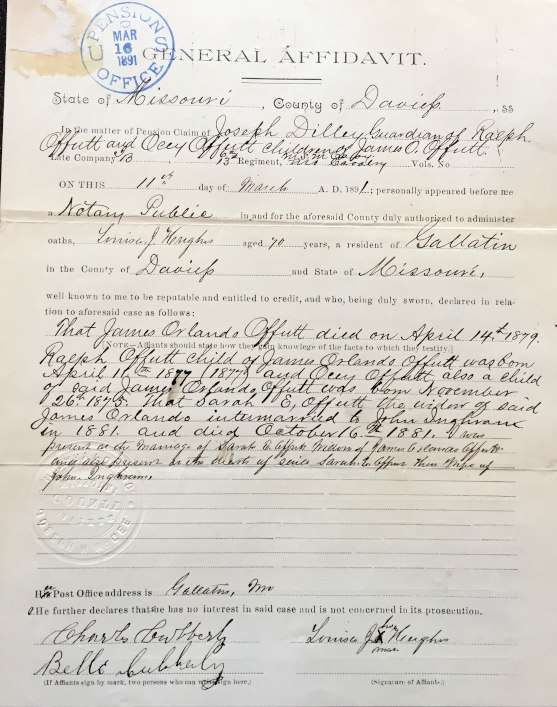 U.S. PENSION OFFICE
MAR
16
1891
GENERAL AFFIDAVIT.
State of Missouri, County of Daviess, SS
In the matter of Pension Claim of Joseph Dilley Guardian of Ralph
Offutt and Ocey Offutt children of James O. Offutt.
Late Company B Regiment, Cavalry Vols. No
ON THIS 11th day of March A. D. 1891; personally appeared before me
a Notary Public in and for the aforesaid County duly authorized to administer
oaths, Louisa J Hughs aged 70 years, a resident of Gallatin
in the County of Daviess and State of Missouri,
well known to me to be reputable and entitled to credit, and who, being duly sworn, declared in rela-
tion to aforesaid case as follows:
That James Orlando Offutt died on April 14th 1879.
(NOTE—Affiants should state how they gain knowlege of the facts to which they testify.)
Ralph Offutt child of James Orlando Offutt was born
April 16th 1877 (1877) and Ocey Offutt also a child
of said James Orlando Offutt was born November
26th 1875. That Sarah E. Offutt the widow of said
James Orlando intermarried to John Inghram
in 1881. and died October 16th 1881. I was
present at the marriage of Sarah E Offutt widow of James Orlando Offutt
and also present at the death of said Sarah E Offutt then wife of
John Inghram.
Her Post Office address is Gallatin, Mo
She further declares that she has no interest in said case and is not concerned in its prosecution,
Charles Cubberly Louisa J her X mark Hughs
Belle Cubberly
(If Affiants sign by mark, two persons who can write sign here.) (Signature of Affiants.)